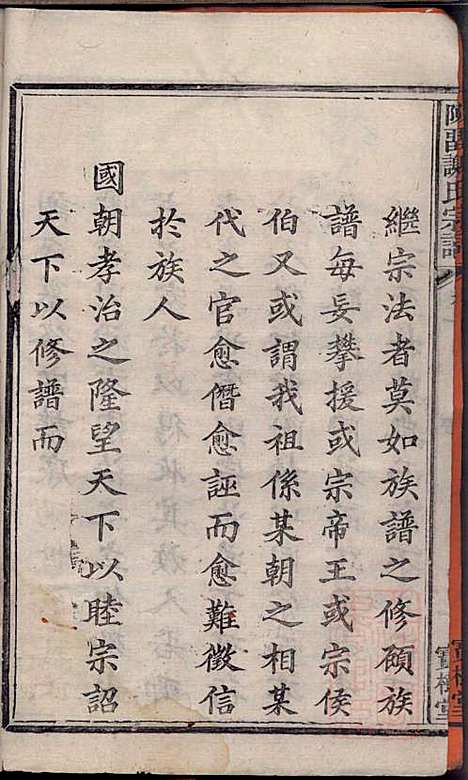 繼宗法者莫如族譜之修顧族
譜每妄攀援或宗帝王或宗侯
伯又或謂我祖係某朝之相某
代之官愈僭愈誣而愈難徵信
於族人
國朝孝治之隆望天下以睦宗詔
天下以修譜而
氏宗譜
寶樹堂